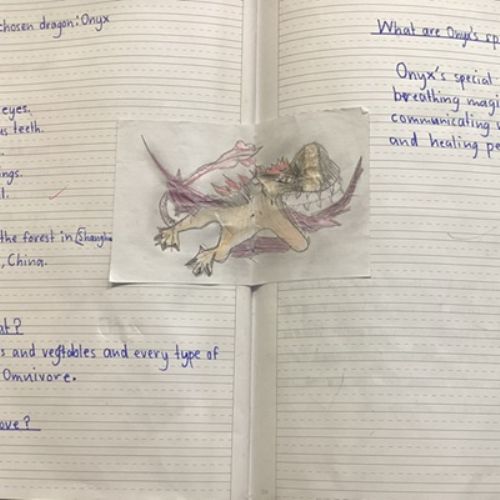 chosen dragon: Onyx
eyes.
teeth.
the forest in Shangha
, China.
at?
s and vegtables and every type of
Omnivore.
ove?
What are Onyx's sp
Onyx's special
breathing magi
communicating
and healing pe